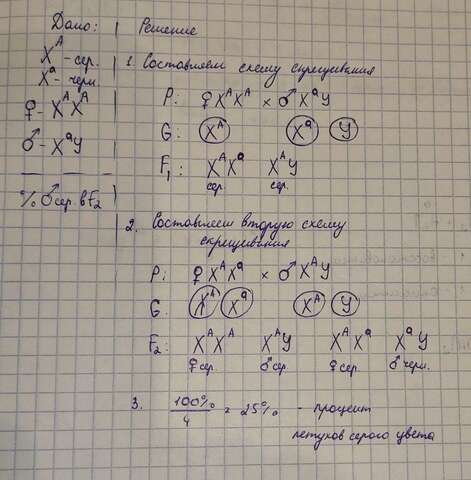 Дано:
X^A - сер.
X^a - черн.
♀ - X^A X^A
♂ - X^a Y
% ♂ сер. в F₂
Решение
1. Составляем схему скрещивания
P: ♀ X^A X^A × ♂ X^a Y
G: X^A X^a Y
F₁: X^A X^a X^A Y
сер. сер.
2. Составляем вторую схему
скрещивания
P: ♀ X^A X^a × ♂ X^A Y
G: X^A X^a X^A Y
F₂: X^A X^A X^A Y X^A X^a X^a Y
♀ сер. ♂ сер. ♀ сер. ♂ черн.
3. 100%/4 = 25% - процент
петухов серого цвета